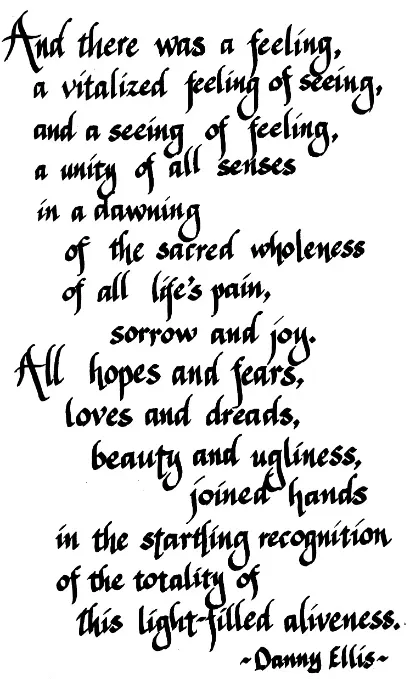 And there was a feeling,
a vitalized feeling of seeing,
and a seeing of feeling,
a unity of all senses
in a dawning
of the sacred wholeness
of all life's pain,
sorrow and joy.
All hopes and fears,
loves and dreads,
beauty and ugliness,
joined hands
in the startling recognition
of the totality of
this light-filled aliveness.
~Danny Ellis~